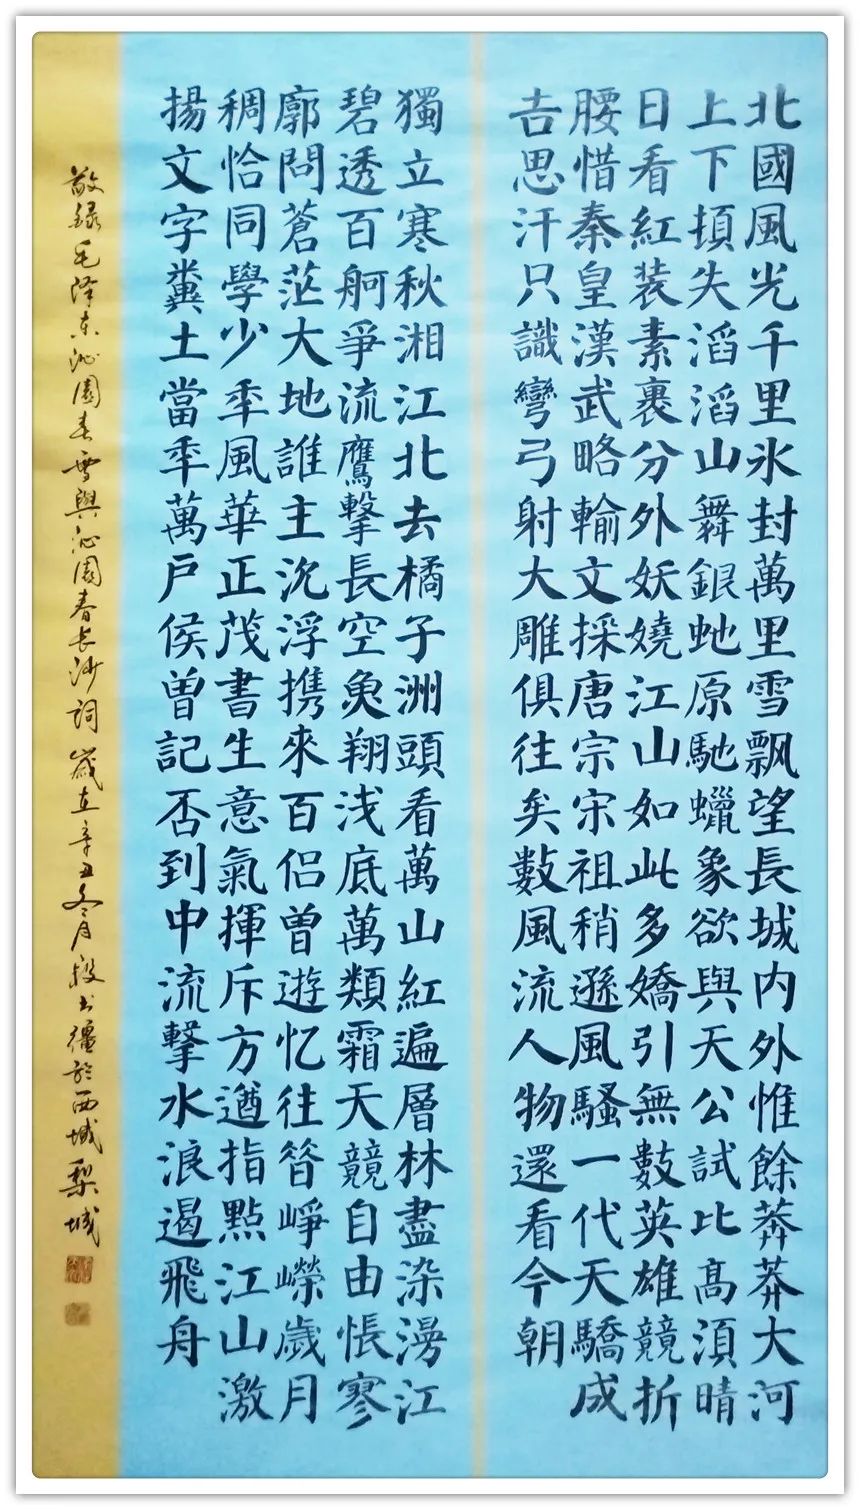 北國風光千里氷封萬里雪飘望長城内外惟餘莽莽大河
上下頓失滔滔山舞銀虵原馳蠟象欲與天公試比高須晴
日看紅装素裹分外妖嬈江山如此多嬌引無數英雄競折
腰惜秦皇漢武略輸文採唐宗宋祖稍遜風騷一代天驕成
吉思汗只識彎弓射大雕俱往矣數風流人物還看今朝
獨立寒秋湘江北去橘子洲頭看萬山紅遍層林盡染漫江
碧透百舸爭流鷹擊長空魚翔浅底萬類霜天競自由悵寥
廓問蒼茫大地誰主沉浮携來百侣曾遊忆往昔崢嶸歲月
稠恰同學少秊風華正茂書生意氣揮斥方遒指點江山激
揚文字糞土當秊萬戶侯曾記否到中流擊水浪遏飛舟
敬録毛泽东沁園春雪與沁園春长沙詞歲在辛丑冬月段书疆於西域梨城